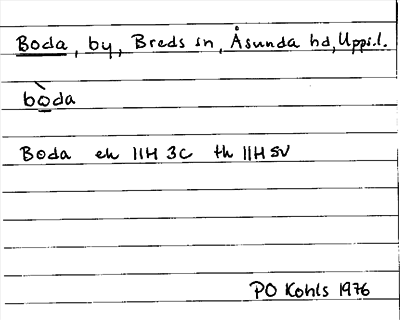 Boda, by, Breds sn, Åsunda hd, Upps.l.
bòda
Boda ek 11H 3C th 11H SV
PO Kohls 1976